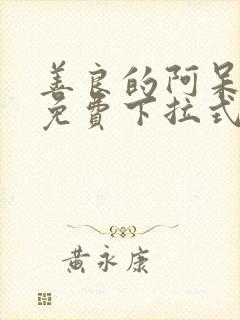 善良的阿呆
免費下拉式
黃永康